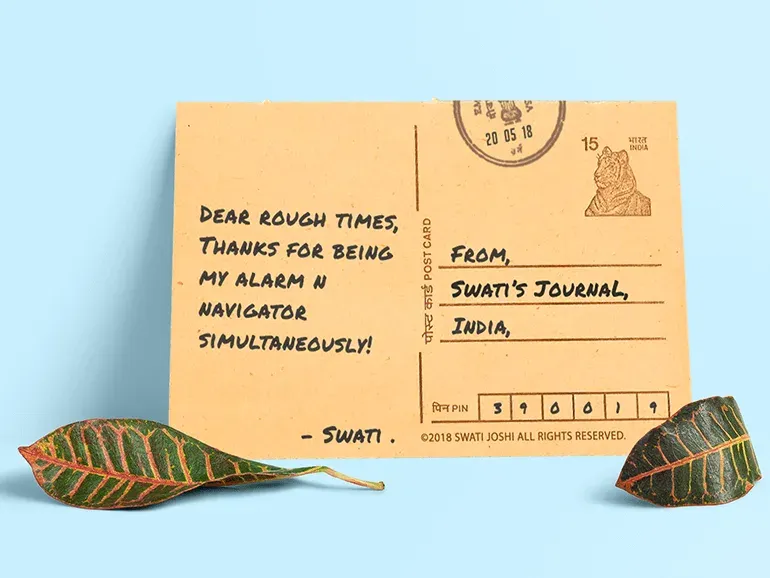 DEAR ROUGH TIMES,
THANKS FOR BEING
MY ALARM N
NAVIGATOR
SIMULTANEOUSLY!
- SWATI .
पोस्ट कार्ड POST CARD
20 05 18
15 भारत
INDIA
FROM,
SWATI'S JOURNAL,
INDIA,
पिन PIN 3 9 0 0 1 9
©2018 SWATI JOSHI ALL RIGHTS RESERVED.